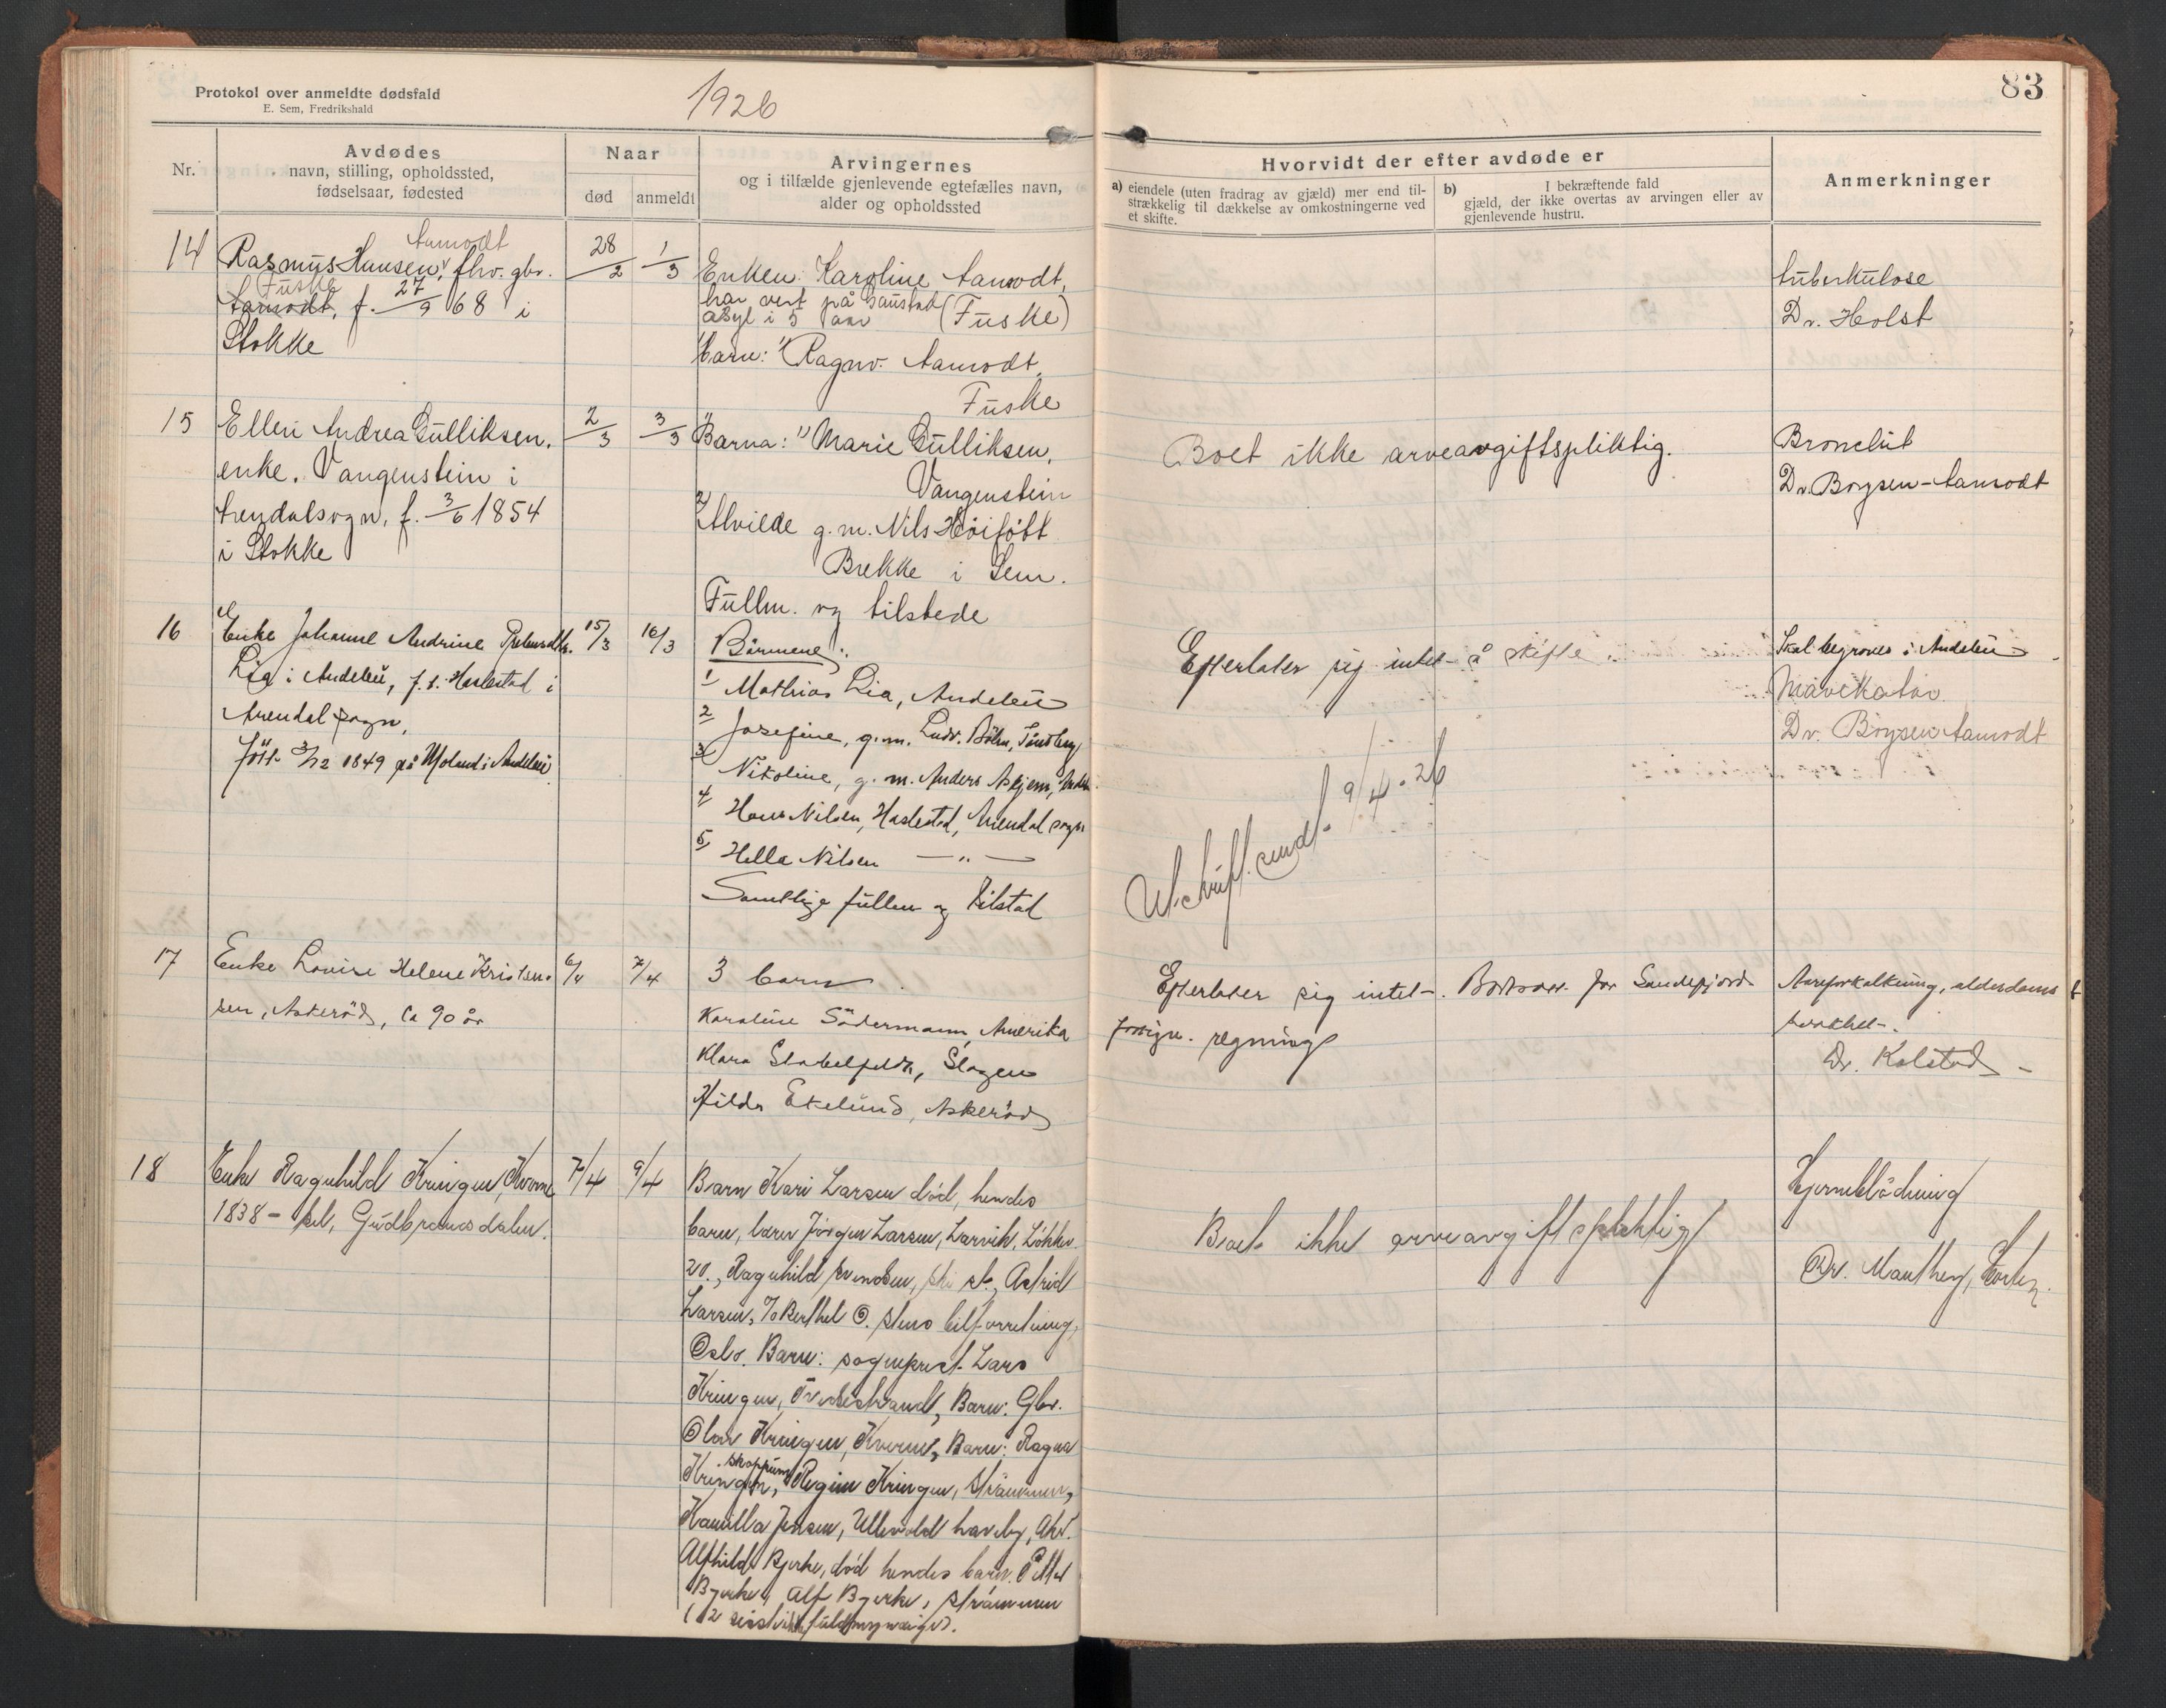 Protokol over anmeldte dødsfald
E. Sem, Fredrikshald
1926
83
Nr.
Avdødes
navn, stilling, opholdssted,
fødselsaar, fødested
Naar
død
anmeldt
Arvingernes
og i tilfælde gjenlevende egtefælles navn,
alder og opholdssted
Hvorvidt der efter avdøde er
a) eiendele (uten fradrag av gjæld) mer end til-
strækkelig til dækkelse av omkostningerne ved
et skifte.
b) I bekræftende fald
gjæld, der ikke overtas av arvingen eller av
gjenlevende hustru.
Anmerkninger
14
Aamodt
Rasmus Hansen, fhv. gbr.
Fuske
Aamodt, f. 27/9 68 i
Stokke
28/2
1/3
Enken: Karoline Aamodt,
har vert på Gaustad
asyl i 5 aar (Fuske)
Barn: 1) Ragnv. Aamodt,
Fuske
tuberkulose
Dr. Holst
15
Ellen Andrea Gulliksen,
enke. Vangenstein i
Arendalsogn, f. 3/6 1854
i Stokke
2/3
3/3
Barna: 1) Marie Gulliksen,
Vangenstein
2) Alvilde g.m. Nils Höiföbt
Brekke i Sem.
Fullm. og tilstede
Boet ikke arveavgiftspliktig.
Bronchit
Dr. Boysen-Aamodt
16
Enke Johanne Andrine
Lia i Andebu, f. s. Haslestad i
Arendal sogn,
född 3/12 1849 på Moland i Andebu
15/3
16/3
Börnene:
1 Mathias Lia, Andebu
2 Josefine, g.m. Ludv. Bölm, Tönsberg
3 Nikoline, g.m. Anders Askjem,
4 Hans Nilsen, Haslestad, Arendal sogn
5 Hella Nilsen — " —
Samtlige fullm og tilsted
Efterlater sig intet å skifte
Utskrift sendt 9/4-26
Skal begraves i Andebu
Mavekatar
Dr. Boysen Aamodt
17
Enke Lovise Helene Kristen-
sen, Askeröd, ca 90 år
6/4
7/4
3 barn
Karoline Södermann, Amerika
Klara Stabelfeldt, Slagen
Hilda Ekelund, Askeröd
Efterlater sig intet. for Sandefjord
regning
Aareforkalkning, alderdoms
svakhet.
Dr. Kolstad
18
Enke Ragnhild Kringen, Kverne
1838 - Gudbrandsdalen.
7/4
9/4
Barn Kari Larsen död, hendes
barn, barn Jörgen Larsen, Larvik, Lökke-
20., Ragnhild Svendsen, Ski st., Astrid
Larsen, c/o Berthel O. Stens bilforretning,
Oslo. Barn: sogneprest Lars
Kringen, Tvedestrand, Barn: Gbr.
Olav Kringen, Kverne, Barn: Ragna
Skoppum
Kringen, Regine Kringen, Strömmen,
Kamilla Jensen, Ullevold haveby,
Alfhild Bjerke, död hendes barn. Petter
Bjerke, Alf Bjerke, Strömmen
(12 siste ikke fuldmyndige).
Boet ikke arveavgiftspliktig
Hjerneblödning
Dr. Manthey, Horten.